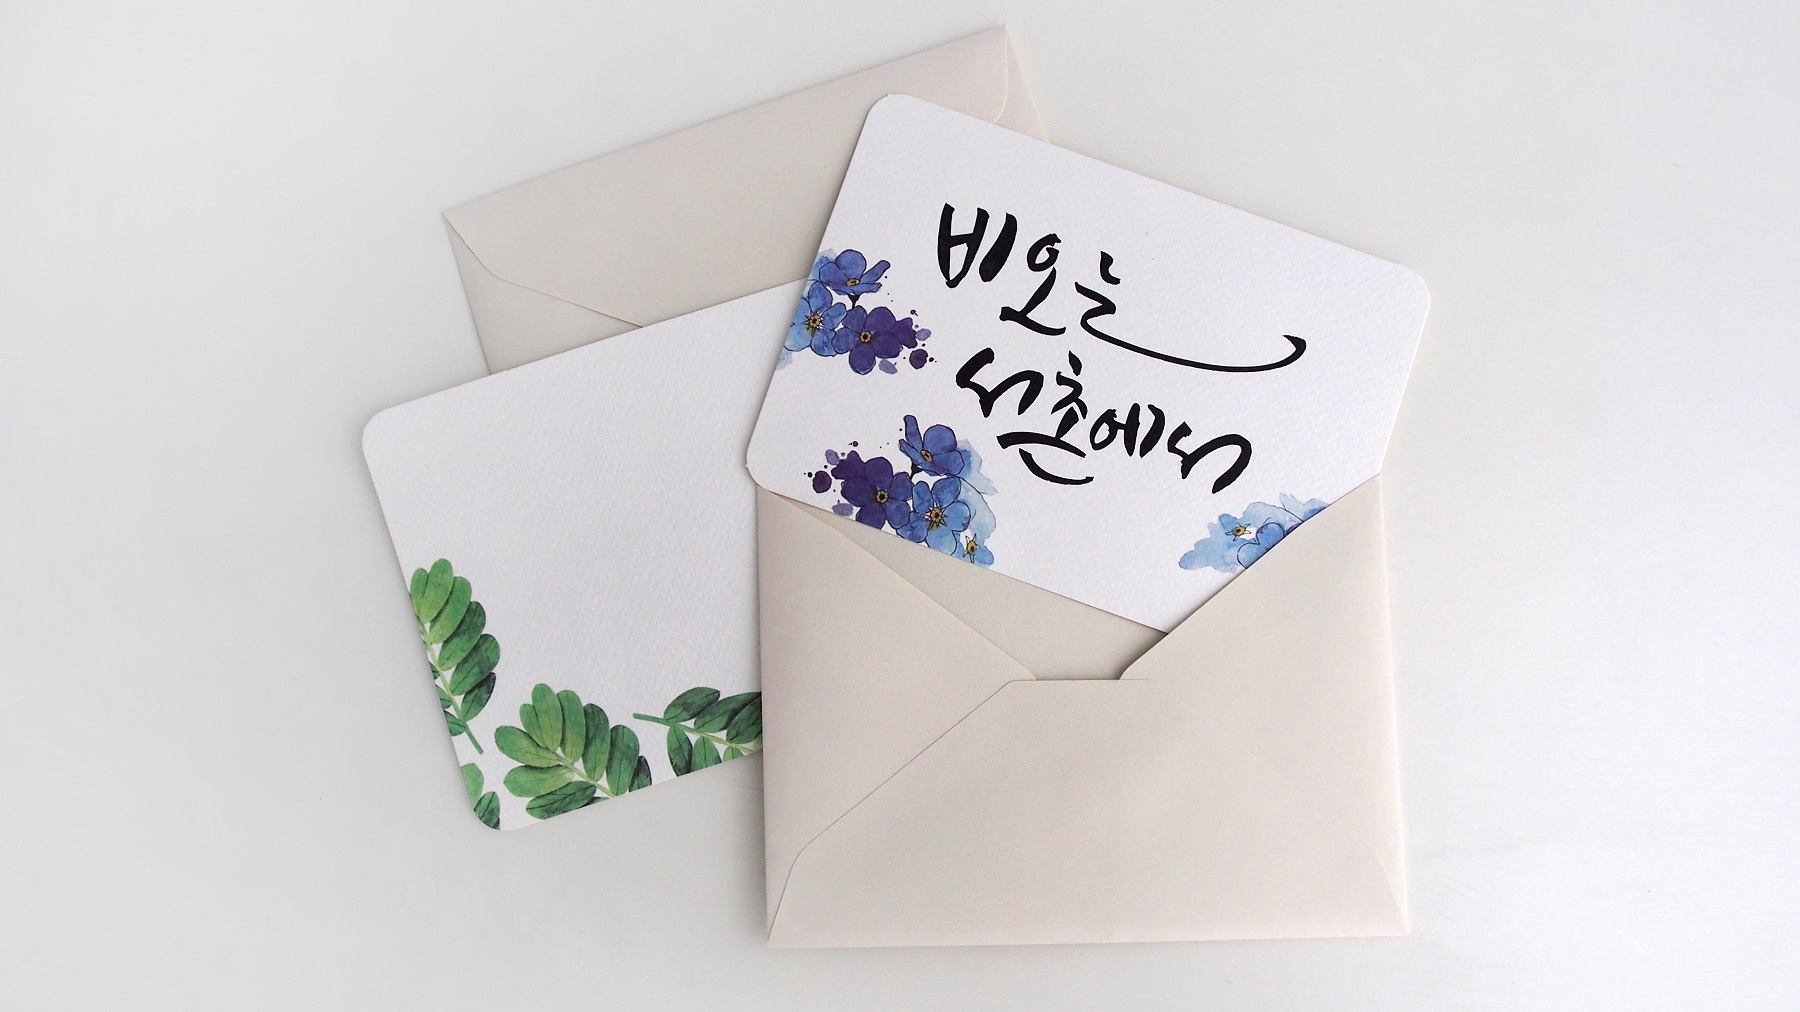 비오는
서촌에서